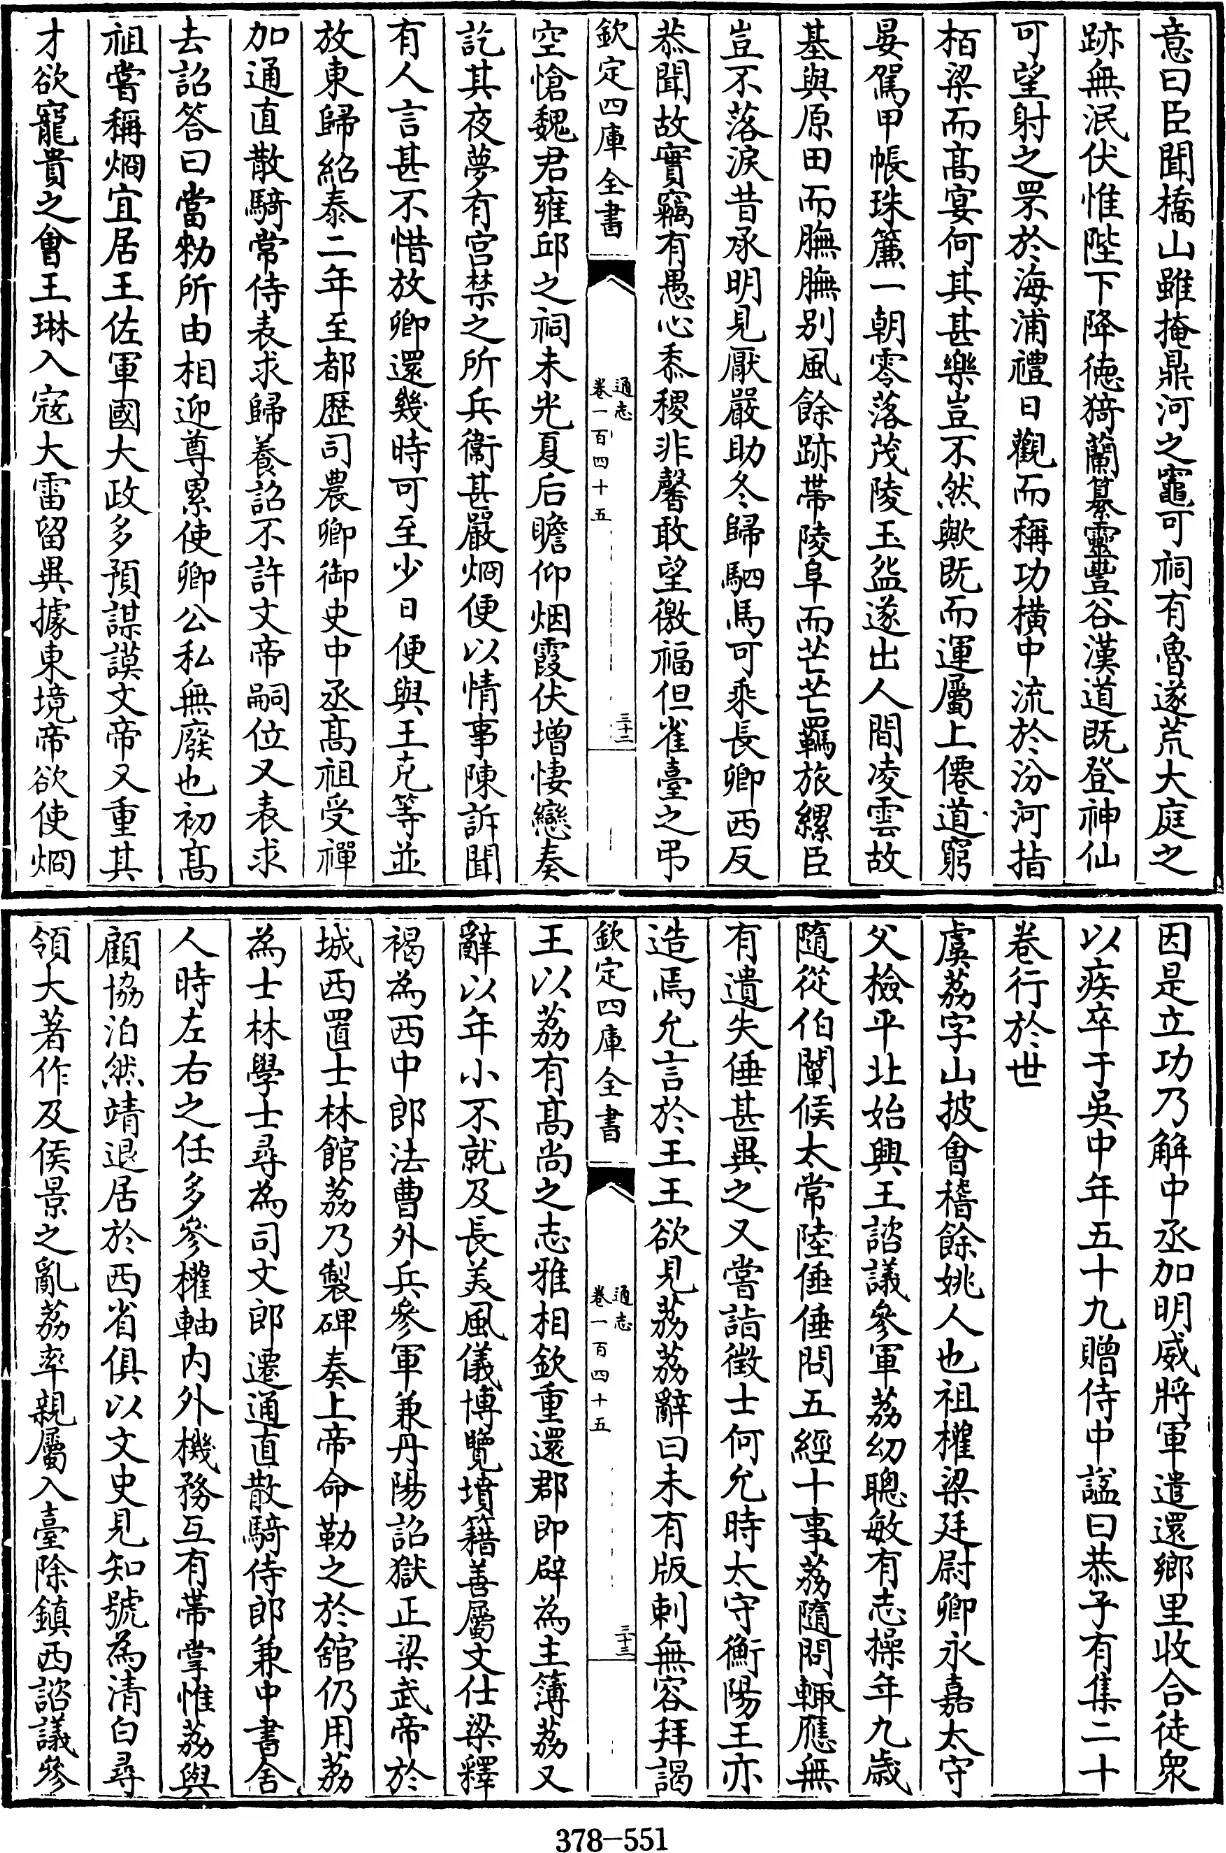 意曰臣聞橋山雖掩鼎河之竈可祠有魯遂荒大庭之
跡無泯伏惟陛下降德猗蘭纂靈豐谷漢道既登神仙
可望射之罘於海浦禮日觀而稱功橫中流於汾河指
栢梁而髙宴何其甚樂豈不然歟既而運屬上僊道窮
晏駕甲帳珠簾一朝零落茂陵玉盌遂出人間凌雲故
基與原田而膴膴别風餘跡帶陵阜而芒芒羈旅縲臣
豈不落淚昔承明見厭嚴助冬歸駟馬可乘長卿西反
恭聞故實竊有愚心黍稷非馨敢望徼福但雀臺之弔
欽定四庫全書
通志
卷一百四十五
三十二
空愴魏君雍邱之祠未光夏后瞻仰烟霞伏增悽戀奏
訖其夜夢有宫禁之所兵衛甚嚴烱便以情事陳訴聞
有人言甚不惜放卿還幾時可至少日便與王克等並
放東歸紹泰二年至都歴司農卿御史中丞髙祖受禪
加通直散騎常侍表求歸養詔不許文帝嗣位又表求
去詔答曰當勑所由相迎尊累使卿公私無廢也初髙
祖嘗稱烱宜居王佐軍國大政多預謀謨文帝又重其
才欲寵貴之會王琳入寇大雷留異據東境帝欲使烱
因是立功乃解中丞加明威將軍遣還鄉里收合徒衆
以疾卒于吳中年五十九贈侍中諡曰恭子有集二十
卷行於世
虞荔字山披會稽餘姚人也祖權梁廷尉卿永嘉太守
父檢平北始興王諮議參軍荔幼聰敏有志操年九歳
隨從伯闡候太常陸倕倕問五經十事荔隨問輒應無
有遺失倕甚異之又嘗詣徵士何允時太守衡陽王亦
造焉允言於王王欲見荔荔辭曰未有版刺無容拜謁
欽定四庫全書
通志
卷一百四十五
三十三
王以荔有髙尚之志雅相欽重還郡即辟為主簿荔又
辭以年小不就及長美風儀博覽墳籍善屬文仕梁釋
褐為西中郎法曹外兵參軍兼丹陽詔獄正梁武帝於
城西置士林館荔乃製碑奏上帝命勒之於舘仍用荔
為士林學士尋為司文郎遷通直散騎侍郎兼中書舍
人時左右之任多參權軸内外機務互有帶掌惟荔與
顧協泊然靖退居於西省俱以文史見知號為清白尋
領大著作及侯景之亂荔率親屬入臺除鎮西諮議參
378-551